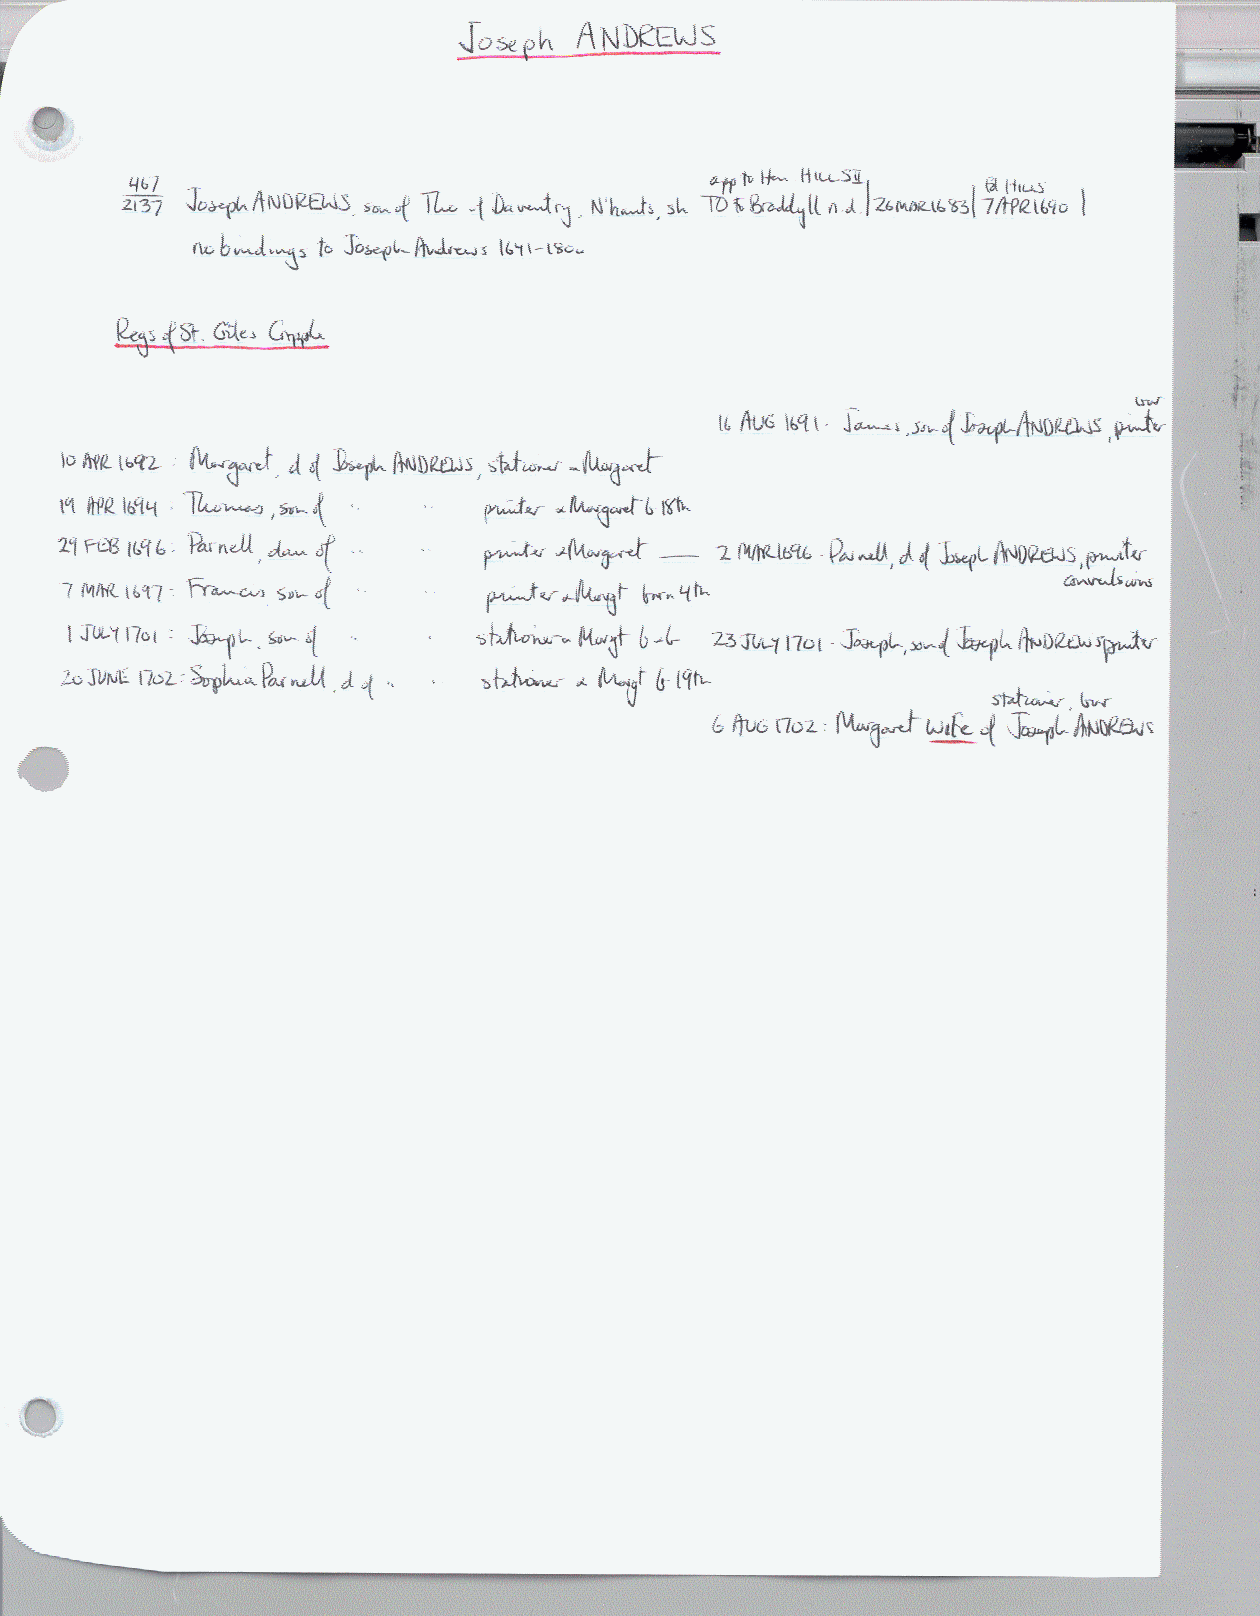 Joseph ANDREWS
467
2137
app to Hen HILLS II
Joseph ANDREWS, son of Tho of Daventry, N'hants, sh TO to Braddyll n.d. | 26 MAR 1683 | 7 APR 1690 |
Hills
no bindings to Joseph Andrews 1641-1800
Regs of St. Giles Cripple
16 AUG 1691. James, son of Joseph ANDREWS, printer
bur
10 APR 1692: Margaret, d of Joseph ANDREWS, stationer & Margaret
19 APR 1694: Thomas, son of " " printer & Margaret b 18th
29 FEB 1696: Parnell, dau of " " printer & Margaret — 2 MAR 1696. Parnell, d of Joseph ANDREWS, printer
convulsions
7 MAR 1697: Francis son of " " printer & Margt born 4th
1 JULY 1701: Joseph, son of " " stationer & Margt b 23 JULY 1701. Joseph, son of Joseph ANDREWS printer
20 JUNE 1702: Sophia Parnell, d of " " stationer & Margt b 19th
stationer, bur
6 AUG 1702: Margaret wife of Joseph ANDREWS